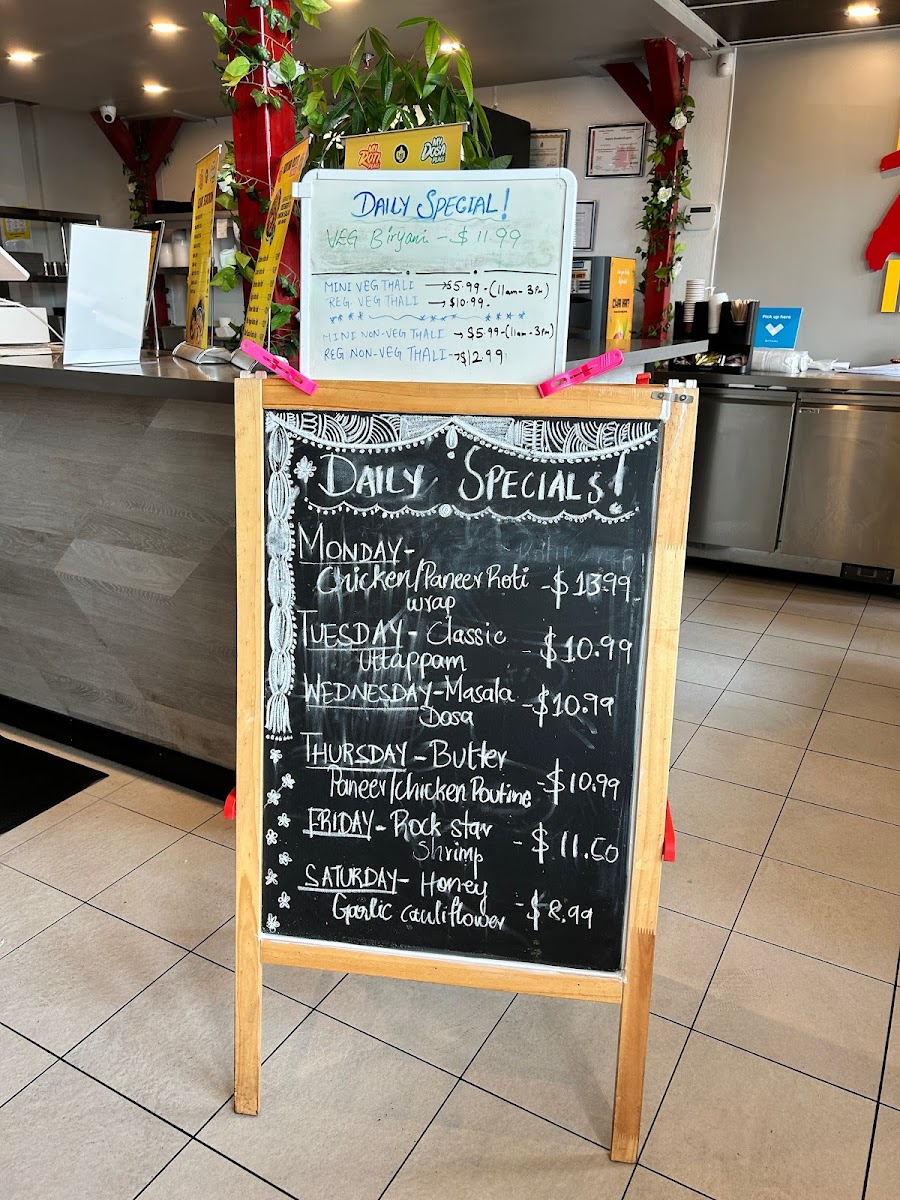 MY ROTI PLACE
MY DOSA PLACE
DAILY SPECIAL!
VEG Biryani - $11.99
MINI VEG THALI → $5.99 - (11am - 3pm)
REG. VEG THALI → $10.99
MINI NON-VEG THALI → $5.99 - (11am - 3pm)
REG NON-VEG THALI → $12.99
Pick up here
DAILY SPECIALS!
MONDAY -
Chicken/Paneer Roti - $13.99
wrap
TUESDAY - Classic - $10.99
Uttappam
WEDNESDAY - Masala - $10.99
Dosa
THURSDAY - Butter
Paneer/chicken Poutine - $10.99
FRIDAY - Rock star - $11.50
Shrimp
SATURDAY - Honey
Garlic cauliflower - $8.99